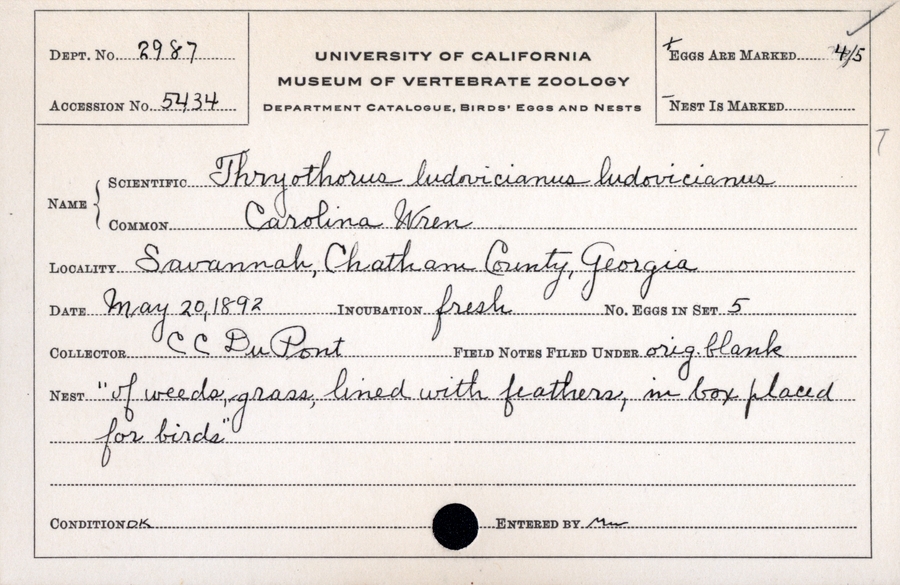 Dept. No. 2987
Accession No. 5434
UNIVERSITY OF CALIFORNIA
MUSEUM OF VERTEBRATE ZOOLOGY
Department Catalogue, Birds' Eggs and Nests
+ Eggs Are Marked 4/5
- Nest Is Marked
T
Name { Scientific Thryothorus ludovicianus ludovicianus
Common Carolina Wren
Locality Savannah, Chatham County, Georgia
Date May 20, 1892 Incubation fresh No. Eggs in Set 5
Collector C C Du Pont Field Notes Filed Under orig. blank
Nest "of weeds, grass, lined with feathers, in box placed
for birds"
Condition OK Entered by